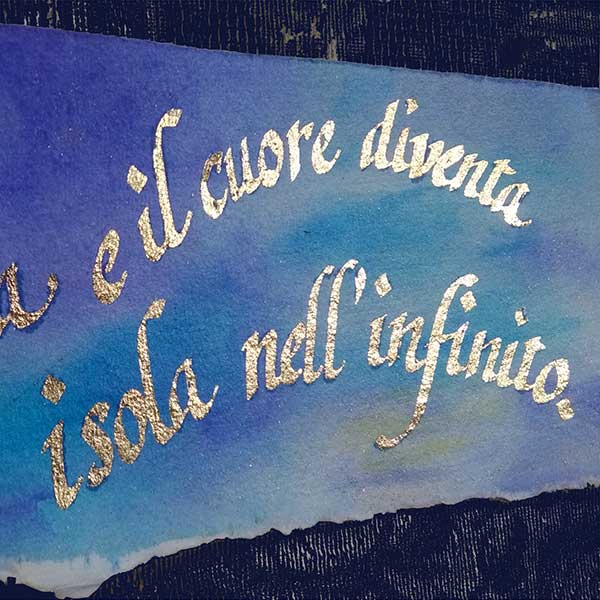 a e il cuore diventa
isola nell'infinito.